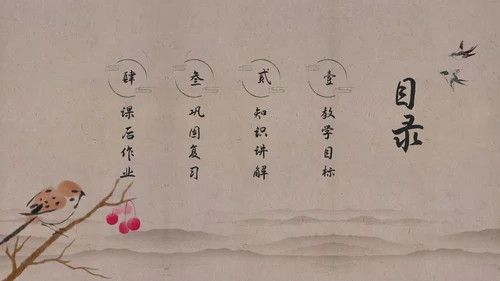 目录
壹
教学目标
贰
知识讲解
叁
巩固复习
肆
课后作业